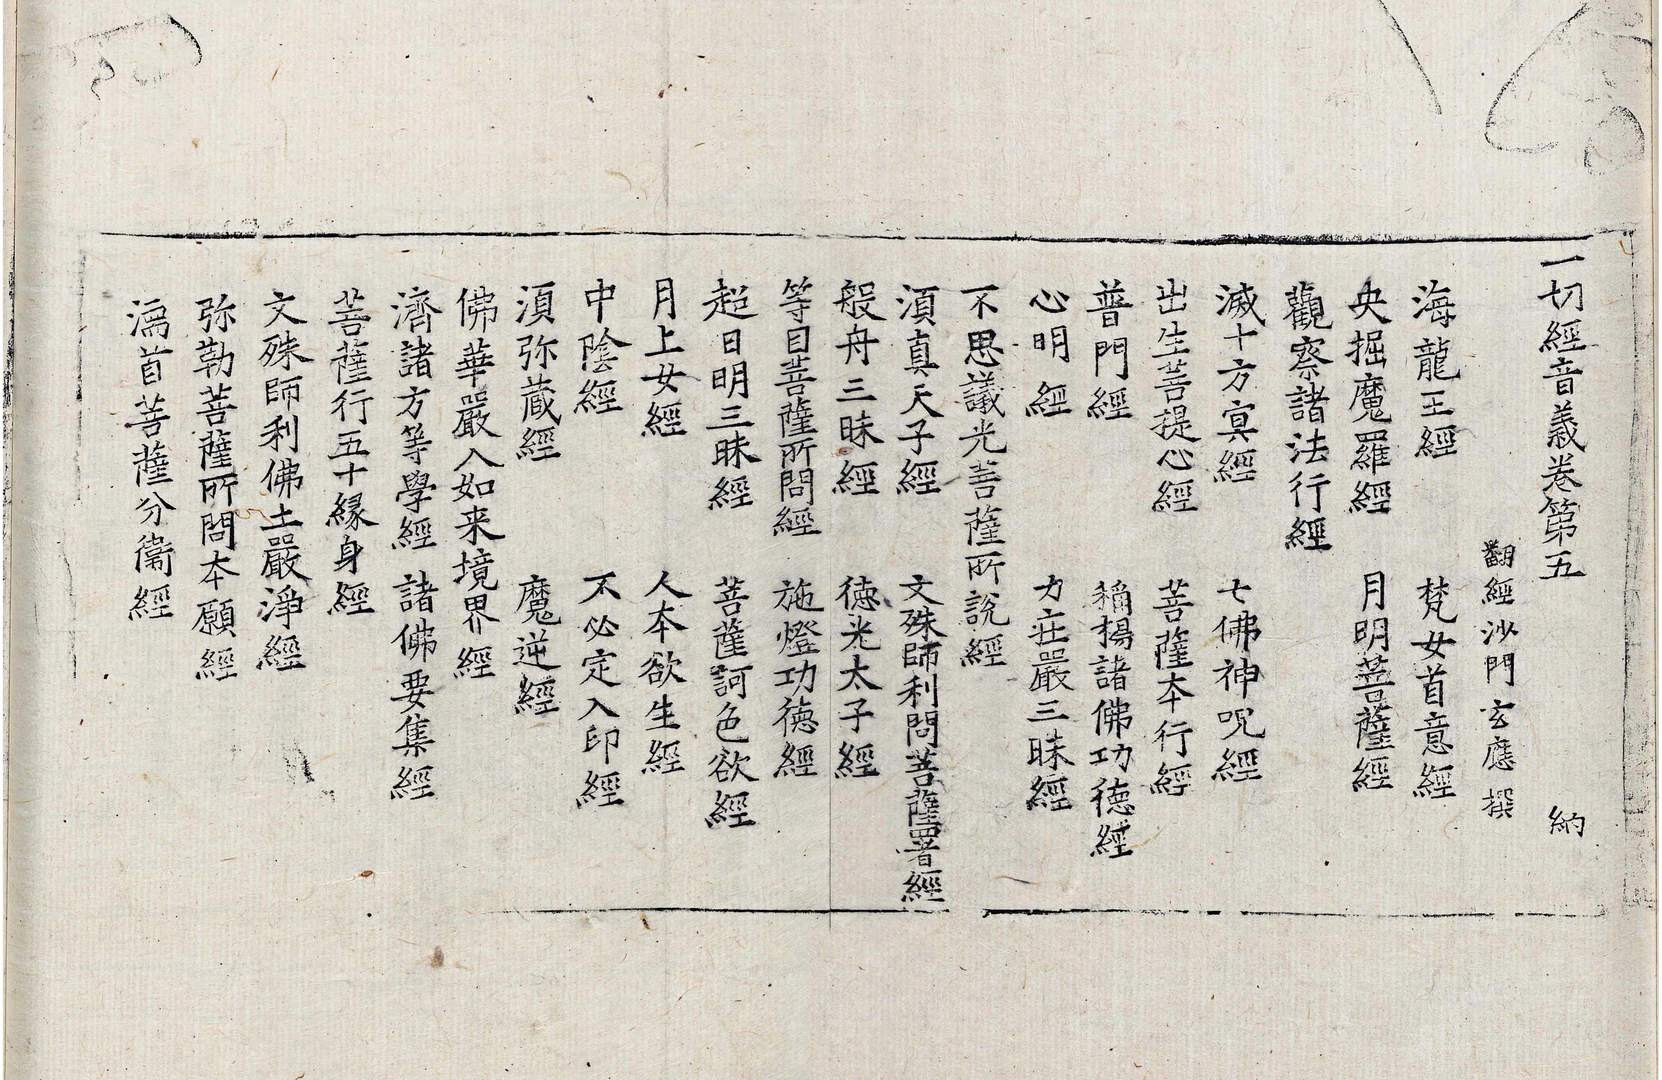 一切經音義卷第五 納
翻經沙門玄應撰
海龍王經 梵女首意經
央掘魔羅經 月明菩薩經
觀察諸法行經
滅十方㝠經 七佛神呪經
出生菩提心經 菩薩本行經
普門經 稱揚諸佛功德經
心明經 力莊嚴三昧經
不思議光菩薩所說經
湏真天子經 文殊師利問菩薩署經
般舟三昧經 德光太子經
等目菩薩所問經 施燈功德經
超日明三昧經 菩薩訶色欲經
月上女經 人本欲生經
中陰經 不必定入印經
湏弥藏經 魔逆經
佛華嚴入如来境界經
濟諸方等學經 諸佛要集經
菩薩行五十緣身經
文殊師利佛土嚴淨經
弥勒菩薩所問本願經
濡首菩薩分衞經